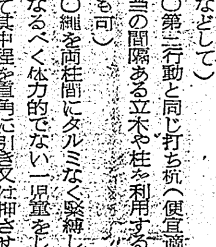 などして)
○第二行動と同じ打ち杭(便宜適
当の間隔ある立木や柱を利用する
も可)
○縄を両柱間にタルミなく緊縛し
なるべく体力的でない一児童をし
て其中程を直角に引き又は押させ